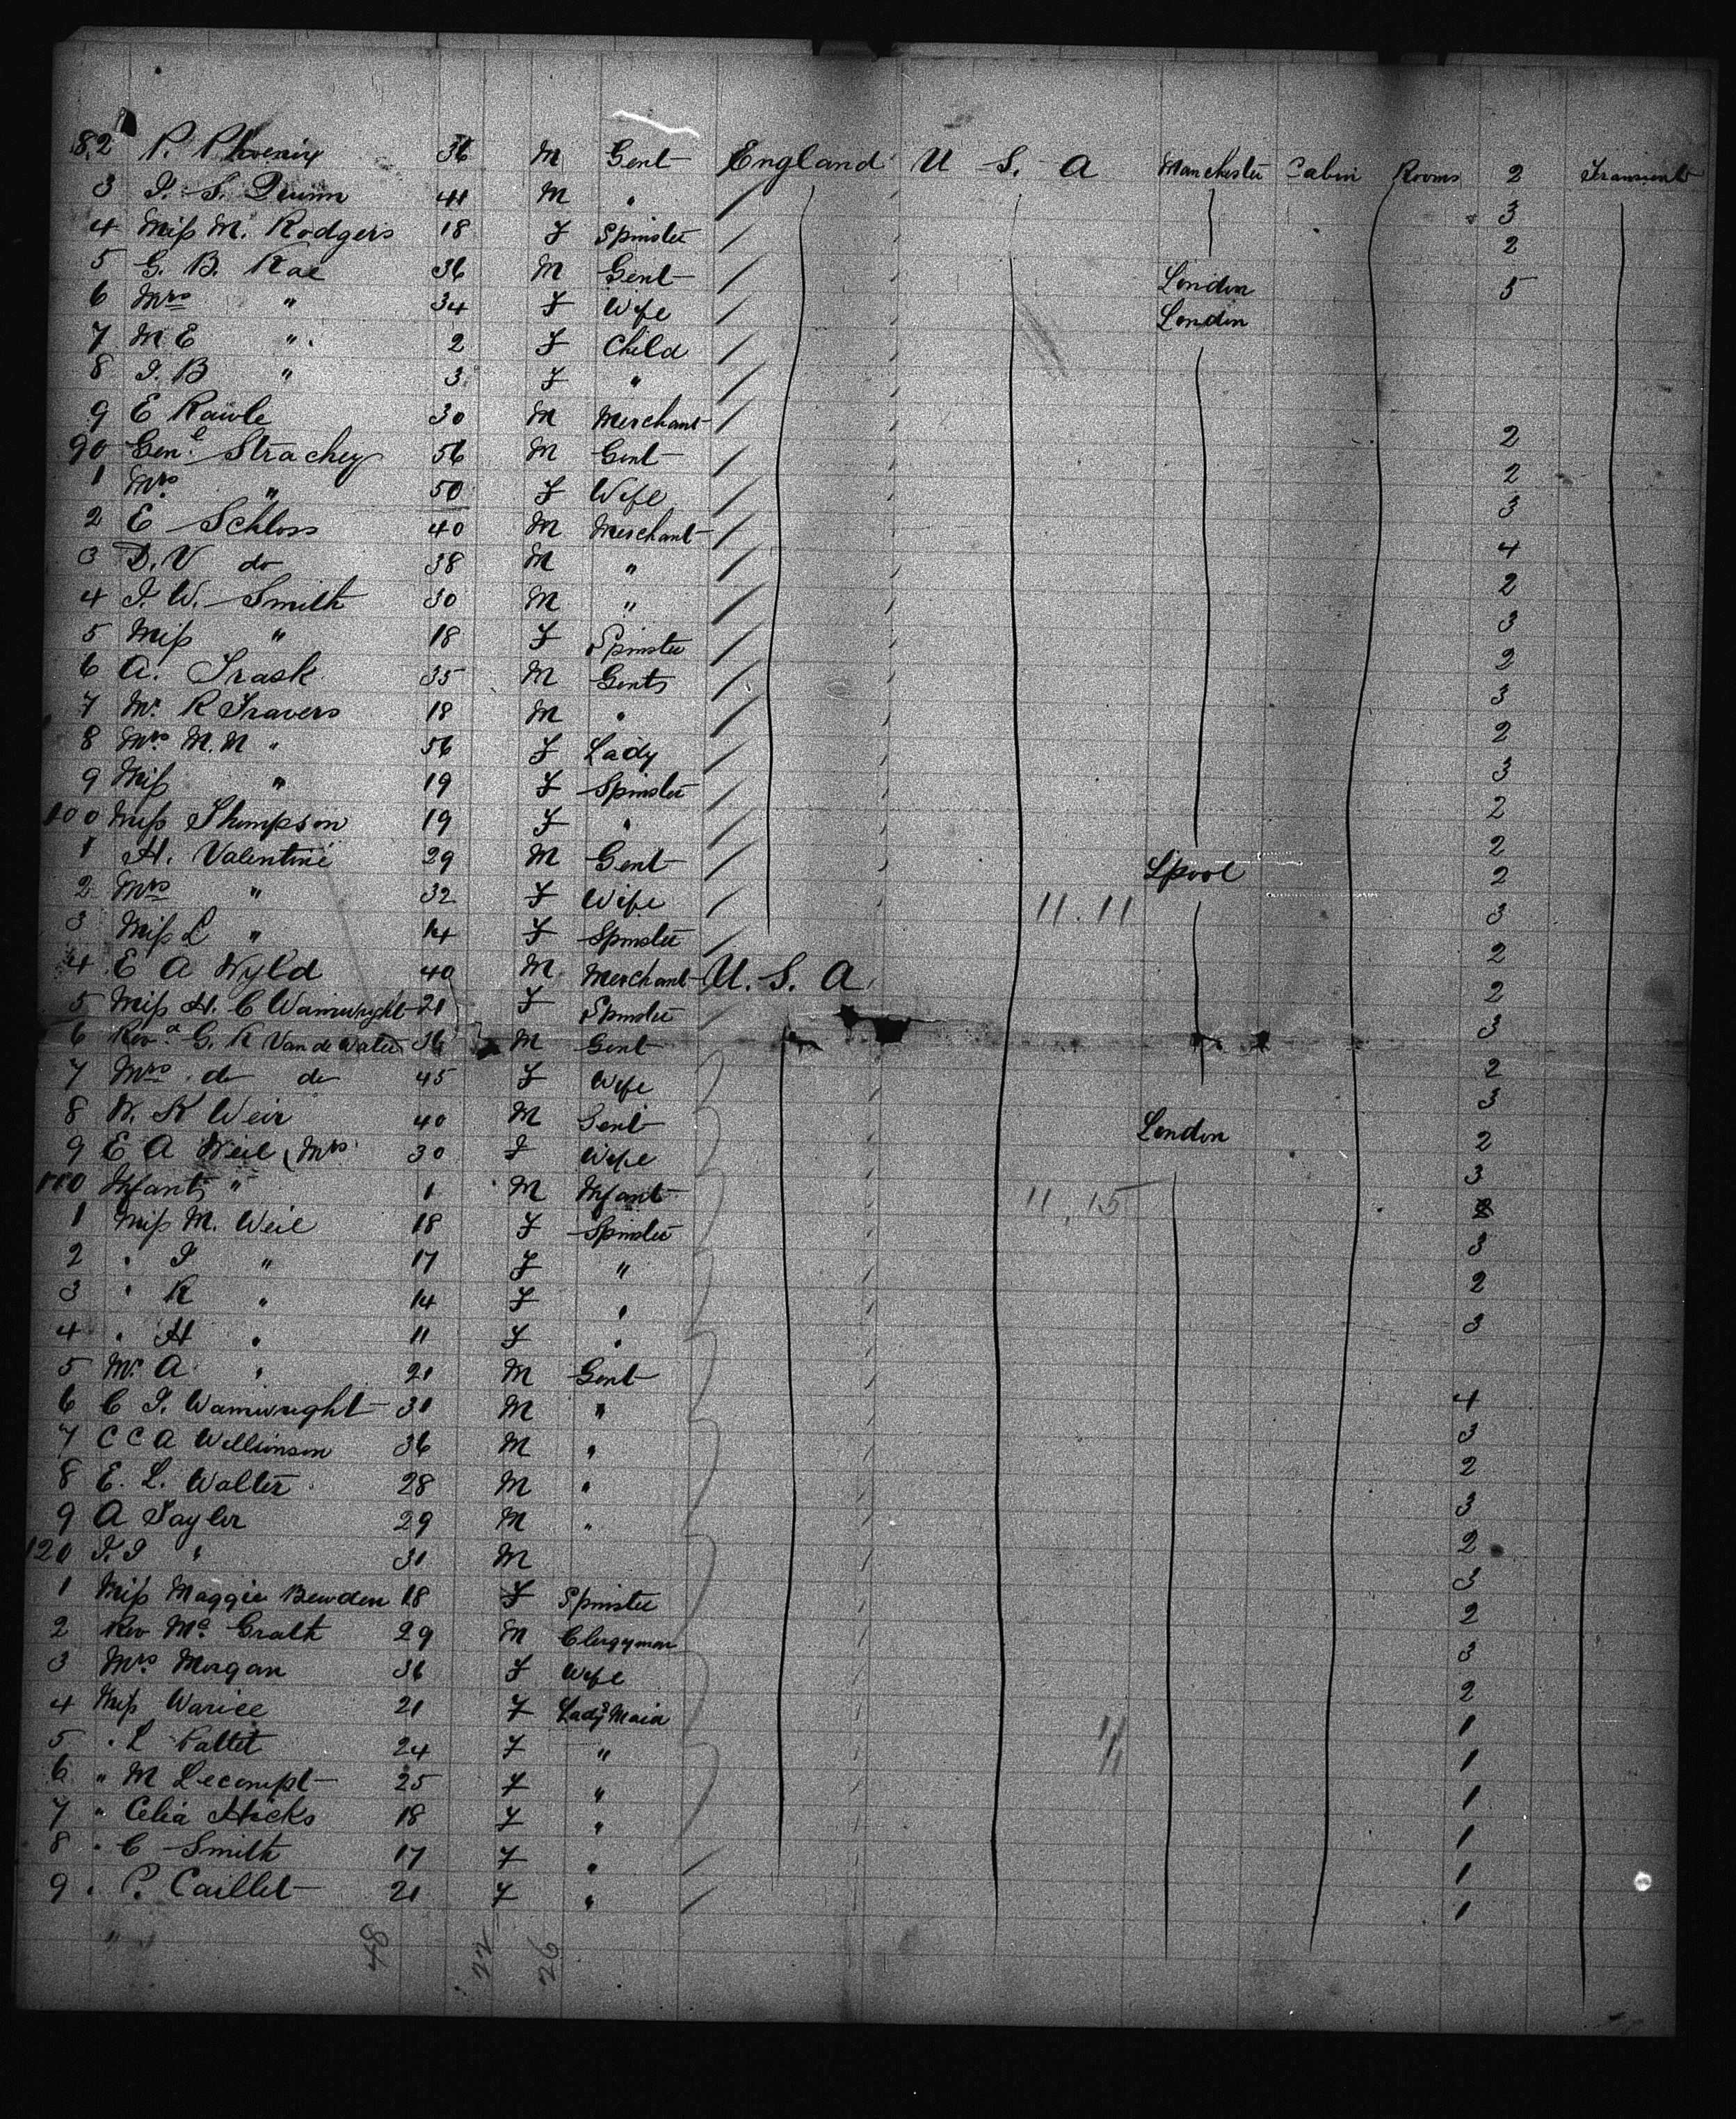 82 P. Phoenix 36 M Gent England U S. A Manchester Cabin Rooms 2 Transient
3 J. S. Quinn 41 M " 3
4 Miss M. Rodgers 18 F Spinster 2
5 G. B. Rae 36 M Gent London 5
6 Mrs " 34 F Wife London
7 M E " 2 F Child
8 J. B " 3 F "
9 E Rawle 30 M Merchant 2
90 Genl Strachey 56 M Gent 2
1 Mrs " 50 F Wife 3
2 E Schloss 40 M Merchant 4
3 D. V do 38 M " 2
4 J. W. Smith 30 M " 3
5 Miss " 18 F Spinster 2
6 A. Trask 35 M Gents 3
7 Mr. R Travers 18 M " 2
8 Mrs M. M " 56 F Lady 3
9 Miss " 19 F Spinster 2
100 Miss Thompson 19 F " 2
1 H. Valentine 29 M Gent Lpool 2
2 Mrs " 32 F Wife 11.11 3
3 Miss L " 14 F Spinster 2
4 E A Wyld 40 M Merchant U. S. A. 2
5 Miss H. C Wainwright 21 F Spinster 3
6 Revd. G. R Van de Water 36 M Gent 2
7 Mrs. do do 45 F Wife 3
8 W. K Weir 40 M Gent London 2
9 E A Weil (Mrs) 30 F Wife 3
110 Infants " 1 M Infant 11.15 2
1 Miss M. Weil 18 F Spinster 3
2 " J " 17 F " 2
3 " R " 14 F " 3
4 " H " 11 F "
5 Mr. A " 21 M Gent 4
6 C J. Wainwright 31 M " 3
7 C C A Wilkinson 36 M " 2
8 E. L. Walter 28 M " 3
9 A Taylor 29 M " 2
120 J. J " 31 M 3
1 Miss Maggie Bewden 18 F Spinster 2
2 Rev Mc Grath 29 M Clergyman 3
3 Mrs. Morgan 36 F Wife 2
4 Miss 21 F Ladys Maid 1
5 " L 24 F " 1
6 " M Lecompt 25 F " 1
7 " Celia Hicks 18 F " 1
8 " C Smith 17 F " 1
9 " P. Caillet 21 F " 1
48 22 26